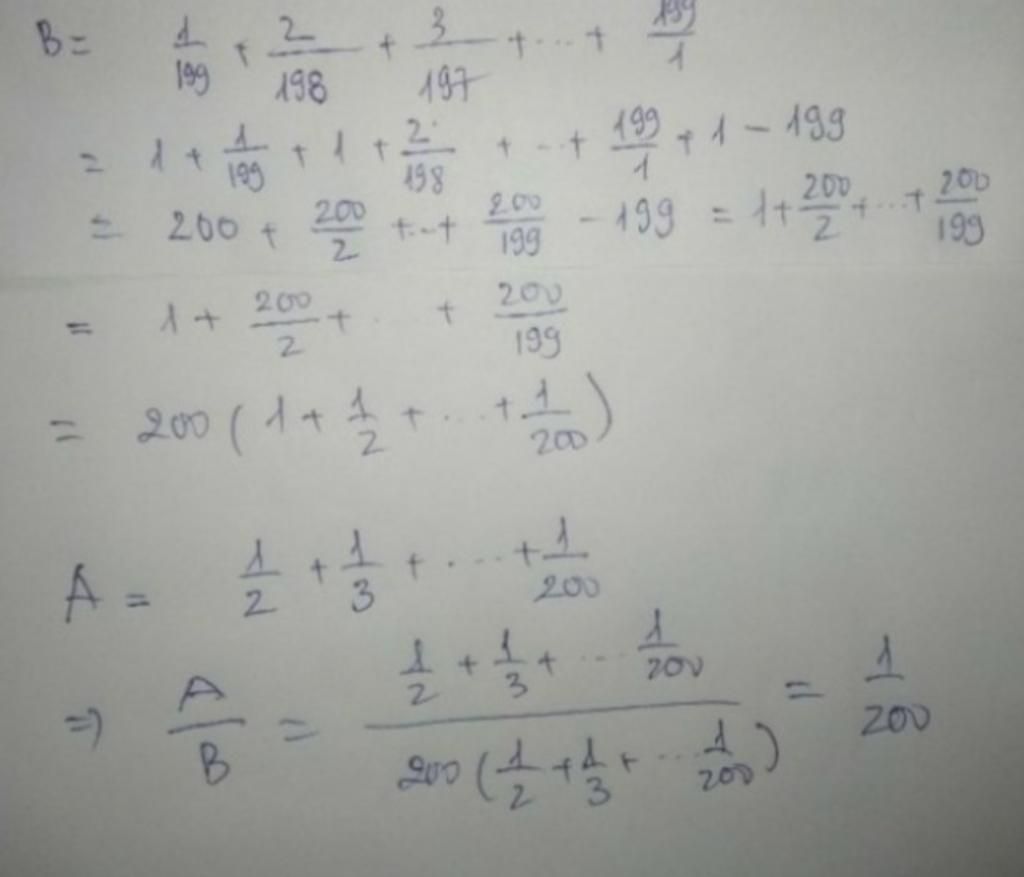 B = 1/199 + 2/198 + 3/197 + ... + 199/1
= 1 + 1/199 + 1 + 2/198 + ... + 199/1 + 1 - 199
= 200 + 200/2 + ... + 200/199 - 199 = 1 + 200/2 + ... + 200/199
= 1 + 200/2 + ... + 200/199
= 200 ( 1 + 1/2 + ... + 1/200 )
A = 1/2 + 1/3 + ... + 1/200
=> A/B = (1/2 + 1/3 + ... 1/200) / (200 ( 1/2 + 1/3 + ... 1/200 )) = 1/200